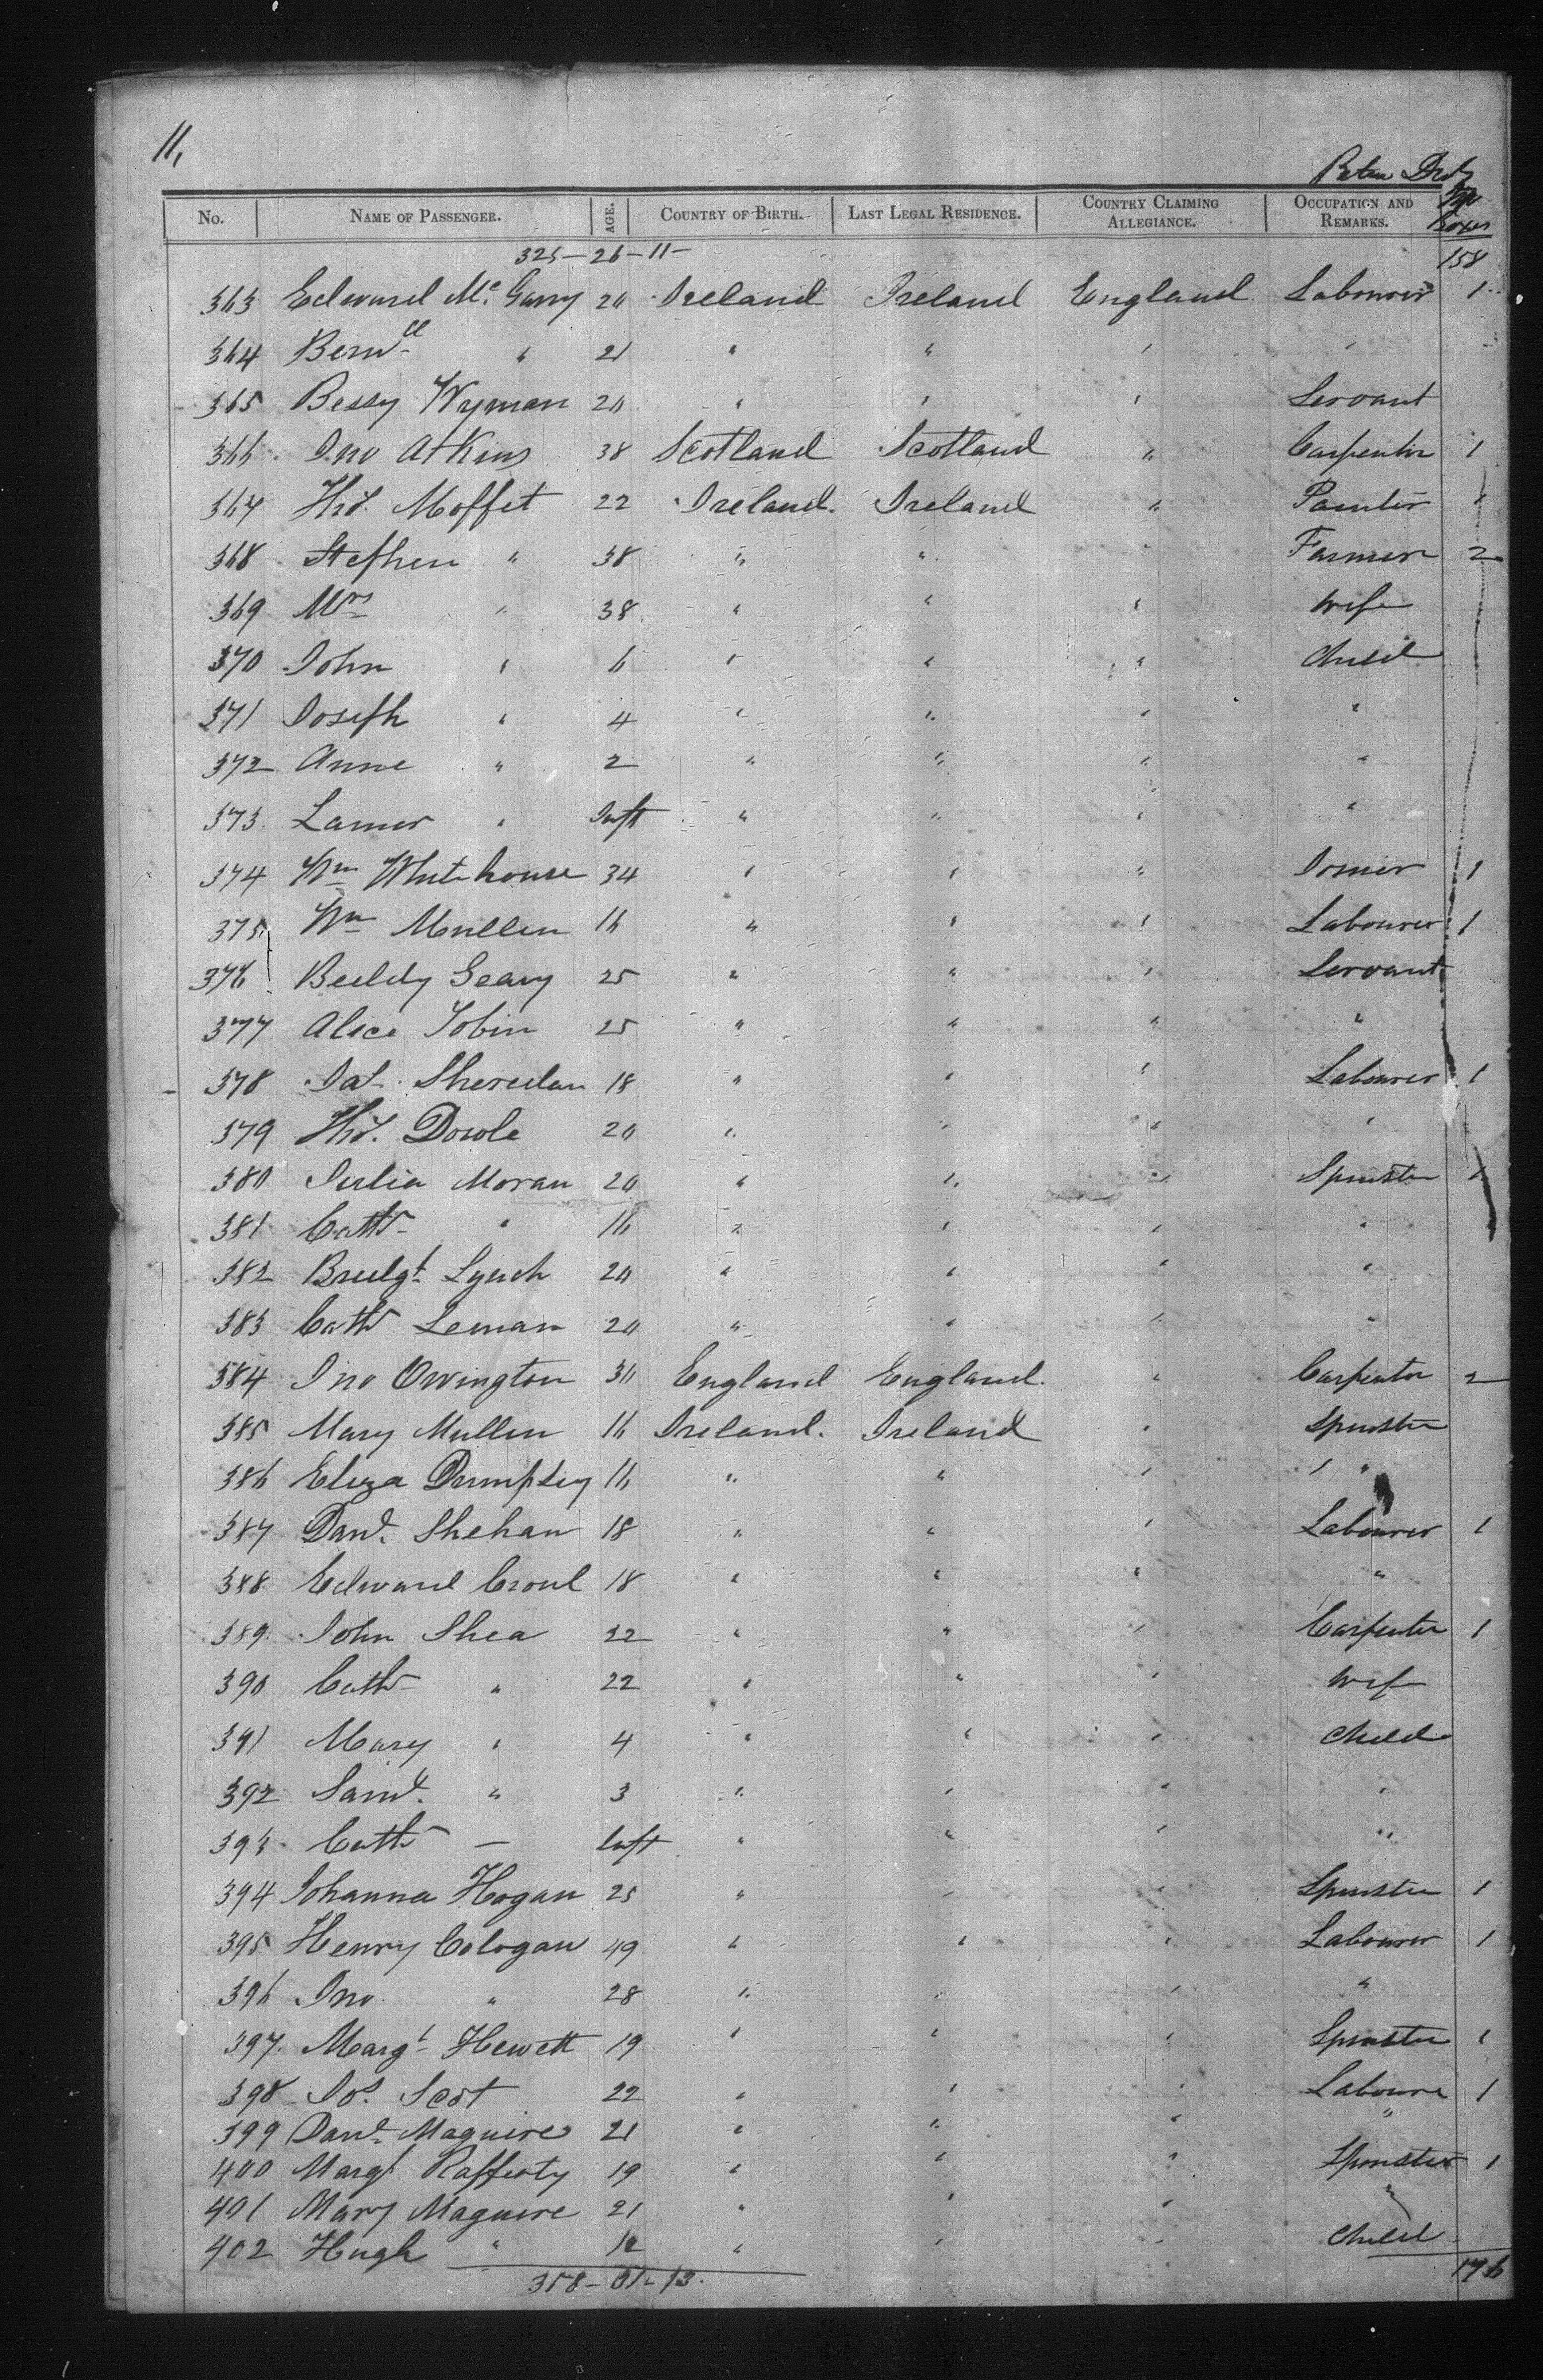 11,
No. NAME OF PASSENGER. AGE. COUNTRY OF BIRTH. LAST LEGAL RESIDENCE. COUNTRY CLAIMING ALLEGIANCE. OCCUPATION AND REMARKS. Boxes
325 – 26 – 11 – 158
363 Edward Mc. Garry 20 Ireland Ireland England Labourer 1
364 " 21 " " " "
365 Bessy Wyman 20 " " " Servant
366 Jno Atkins 38 Scotland Scotland " Carpenter 1
367 Thos. Moffet 22 Ireland. Ireland " Painter 1
368 Stephen " 38 " " " Farmer 2
369 Mrs " 38 " " " Wife
370 John " 6 " " " Child
371 Joseph " 4 " " " "
372 Anne " 2 " " " "
373 " Inft " " " "
374 Wm Whitehouse 34 " " " Joiner 1
375 Wm Mullen 16 " " " Labourer 1
376 Biddy Geary 25 " " " Servant
377 Alice Tobin 25 " " " "
378 Pat. Sheridan 18 " " " Labourer 1
379 Thos. Dowle 20 " " " "
380 Julia Moran 20 " " " Spinster 1
381 Cath " 16 " " " "
382 Bridgt Lynch 20 " " " "
383 Cath Leman 20 " " " "
384 Jno Ovington 30 England England " Carpenter 2
385 Mary Mullen 16 Ireland. Ireland " Spinster
386 Eliza Dumpsey 16 " " " "
387 Danl. Shehan 18 " " " Labourer 1
388 Edward 18 " " " "
389 John Shea 22 " " " Carpenter 1
390 Cath " 22 " " " Wife
391 Mary " 4 " " " Child
392 Saml. " 3 " " " "
393 Cath — Inft " " " "
394 Johanna Hogan 25 " " " Spinster 1
395 Henry Cologan 49 " " " Labourer 1
396 Jno " 28 " " " "
397 Margt Hewett 19 " " " Spinster 1
398 Jos. Scot 22 " " " Laboure 1
399 Danl. Maguire 21 " " " "
400 Margt Rafferty 19 " " " Spinster 1
401 Mary Maguire 21 " " " "
402 Hugh " " " " Child
358 – 31 – 13. 176